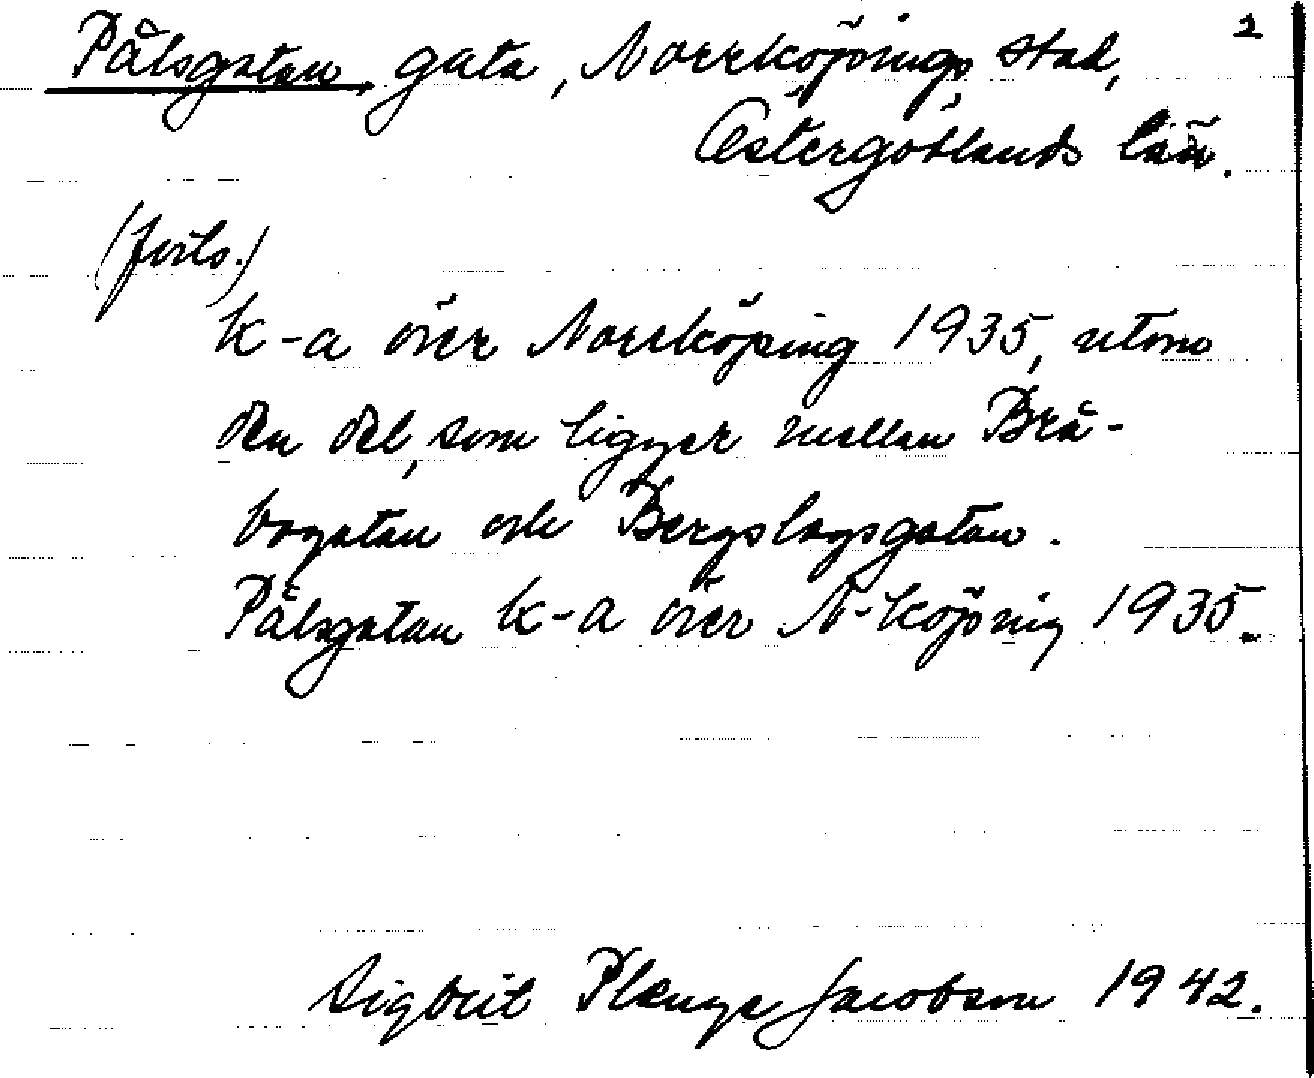 Pålsgatan, gata, Norrköpings stad, 2
Östergötlands län.
(forts.)
k-a över Norrköping 1935, utom
den del, som ligger mellan Brå-
bogatan och Bergslagsgatan.
Pålsgatan k-a över N-köping 1935.
Sigbrit Plænge Jacobson 1942.